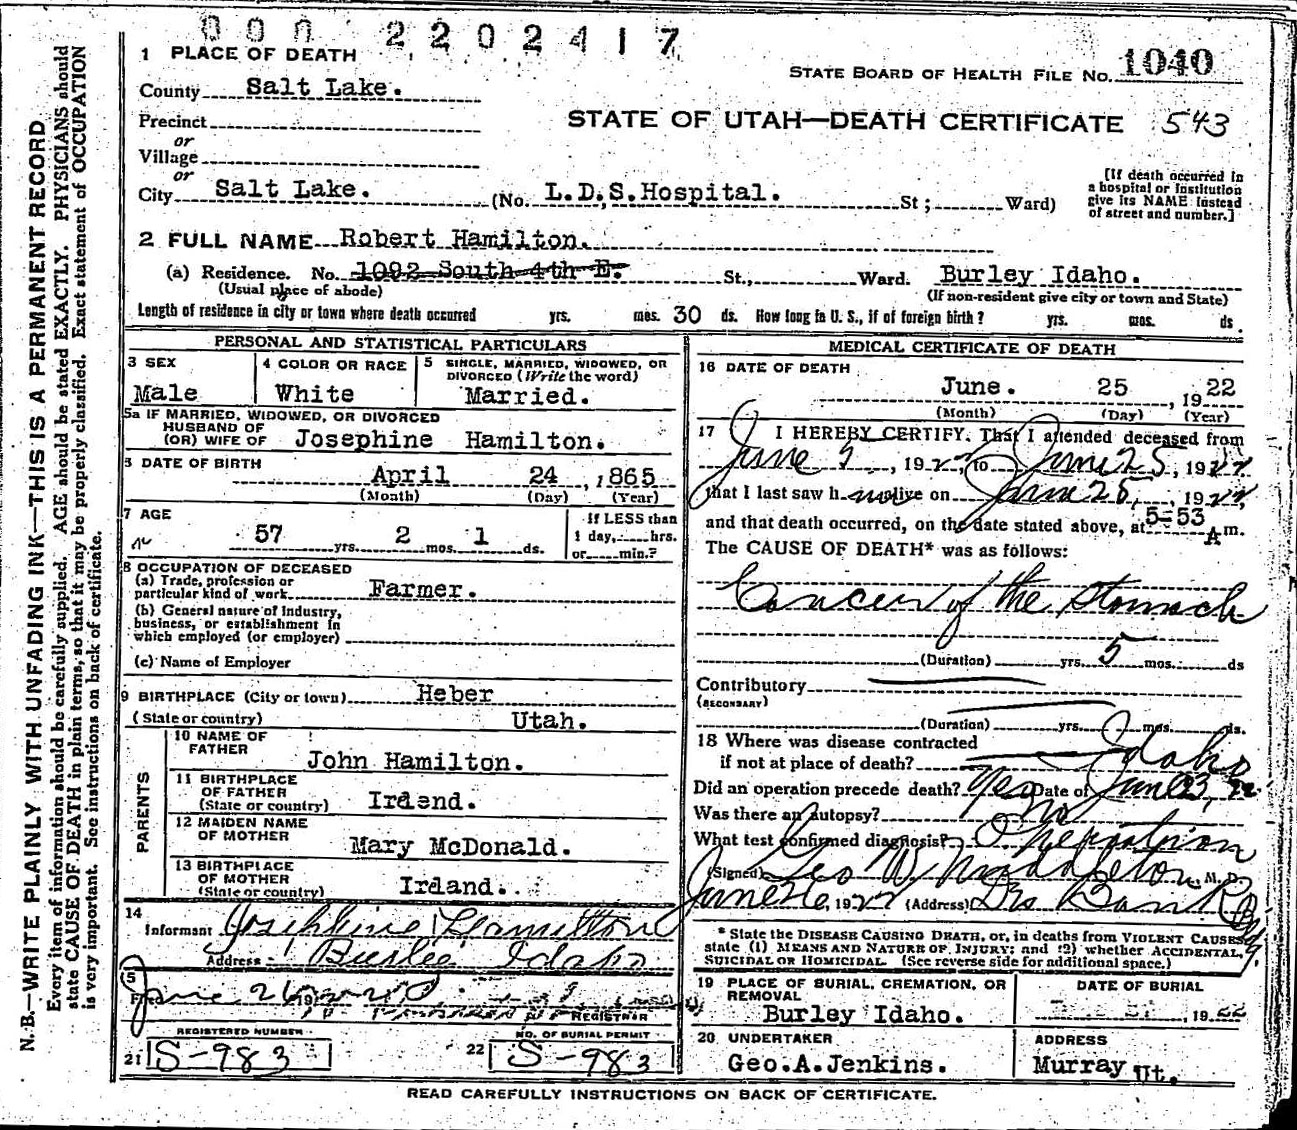 000 2202417
1 PLACE OF DEATH
STATE BOARD OF HEALTH FILE NO. 1040
County Salt Lake.
Precinct
STATE OF UTAH—DEATH CERTIFICATE 543
or
Village
or
City Salt Lake. (No. L.D.S.Hospital. St; Ward)
[If death occurred in
a hospital or institution
give its NAME instead
of street and number.]
2 FULL NAME Robert Hamilton.
(a) Residence. No. 1092 South 4th E. St., Ward. Burley Idaho.
(Usual place of abode) (If non-resident give city or town and State)
Length of residence in city or town where death occurred yrs. mos. 30 ds. How long in U. S., if of foreign birth? yrs. mos. ds.
PERSONAL AND STATISTICAL PARTICULARS
3 SEX
Male
4 COLOR OR RACE
White
5 SINGLE, MARRIED, WIDOWED, OR
DIVORCED (Write the word)
Married.
5a IF MARRIED, WIDOWED, OR DIVORCED
HUSBAND OF
(OR) WIFE OF Josephine Hamilton.
6 DATE OF BIRTH
April 24, 1865
(Month) (Day) (Year)
7 AGE
57 yrs. 2 mos. 1 ds.
If LESS than
1 day, hrs.
or min.?
8 OCCUPATION OF DECEASED
(a) Trade, profession or
particular kind of work Farmer.
(b) General nature of Industry,
business, or establishment in
which employed (or employer)
(c) Name of Employer
9 BIRTHPLACE (City or town) Heber
(State or country) Utah.
PARENTS
10 NAME OF
FATHER
John Hamilton.
11 BIRTHPLACE
OF FATHER
(State or country) Irdand.
12 MAIDEN NAME
OF MOTHER
Mary McDonald.
13 BIRTHPLACE
OF MOTHER
(State or country) Irdand.
14
Informant Josephine Hamilton
Address Burley Idaho
15
Filed June 26 1922
REGISTRAR
REGISTERED NUMBER
21 S-983
NO. OF BURIAL PERMIT
22 S-983
MEDICAL CERTIFICATE OF DEATH
16 DATE OF DEATH
June. 25, 1922
(Month) (Day) (Year)
17 I HEREBY CERTIFY. That I attended deceased from
June 5, 1922, to June 25, 1922
that I last saw him alive on June 25, 1922,
and that death occurred, on the date stated above, at 5-53 A m.
The CAUSE OF DEATH* was as follows:
Cancer of the Stomach
(Duration) yrs. 5 mos. ds
Contributory
(SECONDARY)
(Duration) yrs. mos. ds.
18 Where was disease contracted
if not at place of death? Idaho
Did an operation precede death? Yes Date of June 23, 22
Was there an autopsy? no
What test confirmed diagnosis? Operation
(Signed) Geo W. Middleton M. D.
June 26, 1922 (Address) Ds Bank Bldg
* State the DISEASE CAUSING DEATH, or, in deaths from VIOLENT CAUSES,
state (1) MEANS AND NATURE OF INJURY; and (2) whether ACCIDENTAL,
SUICIDAL OR HOMICIDAL. (See reverse side for additional space.)
19 PLACE OF BURIAL, CREMATION, OR
REMOVAL
Burley Idaho.
DATE OF BURIAL
, 1922
20 UNDERTAKER
Geo.A.Jenkins.
ADDRESS
Murray Ut.
READ CAREFULLY INSTRUCTIONS ON BACK OF CERTIFICATE.
N.B.—WRITE PLAINLY WITH UNFADING INK—THIS IS A PERMANENT RECORD
Every item of information should be carefully supplied. AGE should be stated EXACTLY. PHYSICIANS should
state CAUSE OF DEATH in plain terms, so that it may be properly classified. Exact statement of OCCUPATION
is very important. See instructions on back of certificate.